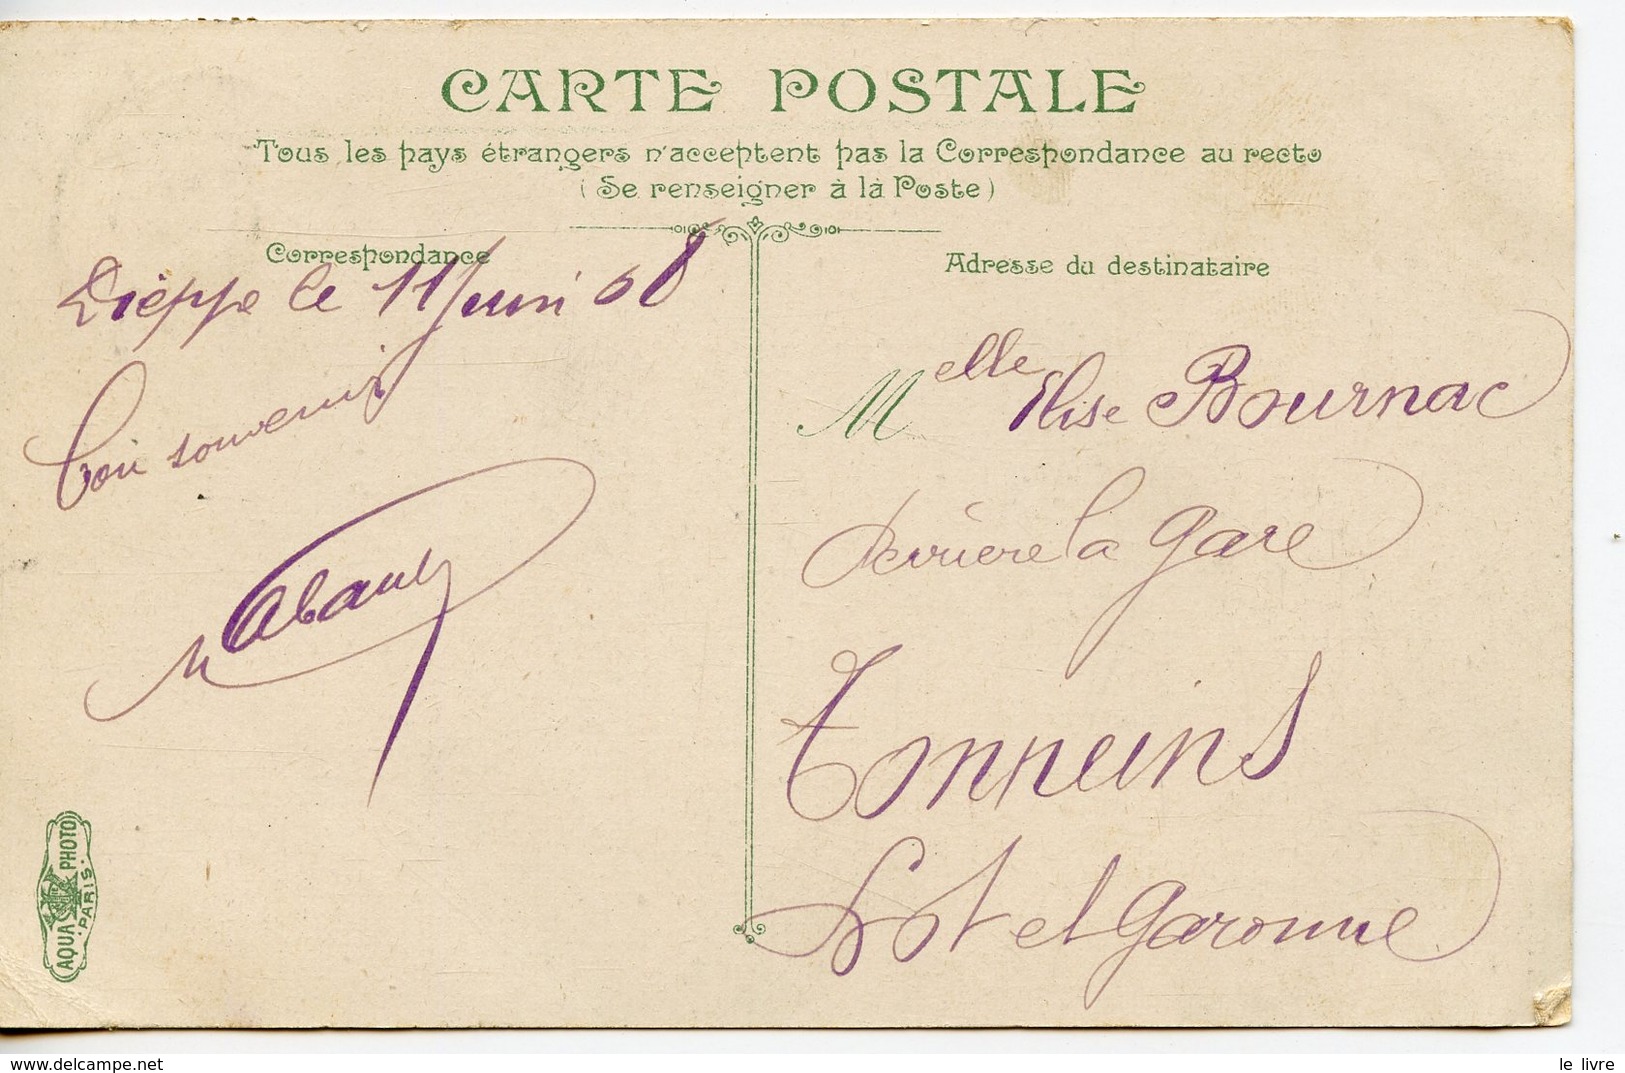 CARTE POSTALE
Tous les pays étrangers n'acceptent pas la Correspondance au recto
(Se renseigner à la Poste)
Correspondance
Dieppe le 11 Juin 08
Bon souvenir
Adresse du destinataire
Melle Elise Bournac
derrière la gare
Tonneins
Lot et Garonne
AQUA PHOTO
PARIS
www.delcampe.net
le livre